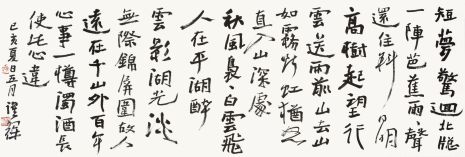 短夢驚迴北牕
一陣芭蕉雨聲
還住斜陽
高樹起望行
雲送雨前山去山
如霧外虹猶
直入山深處
秋風裊裊白雲飛
人在平湖醉
雲影湖光淡
無際錦屏圍故人
遠在千山外百年
心事一樽濁酒長
使此心違
己亥夏日五月